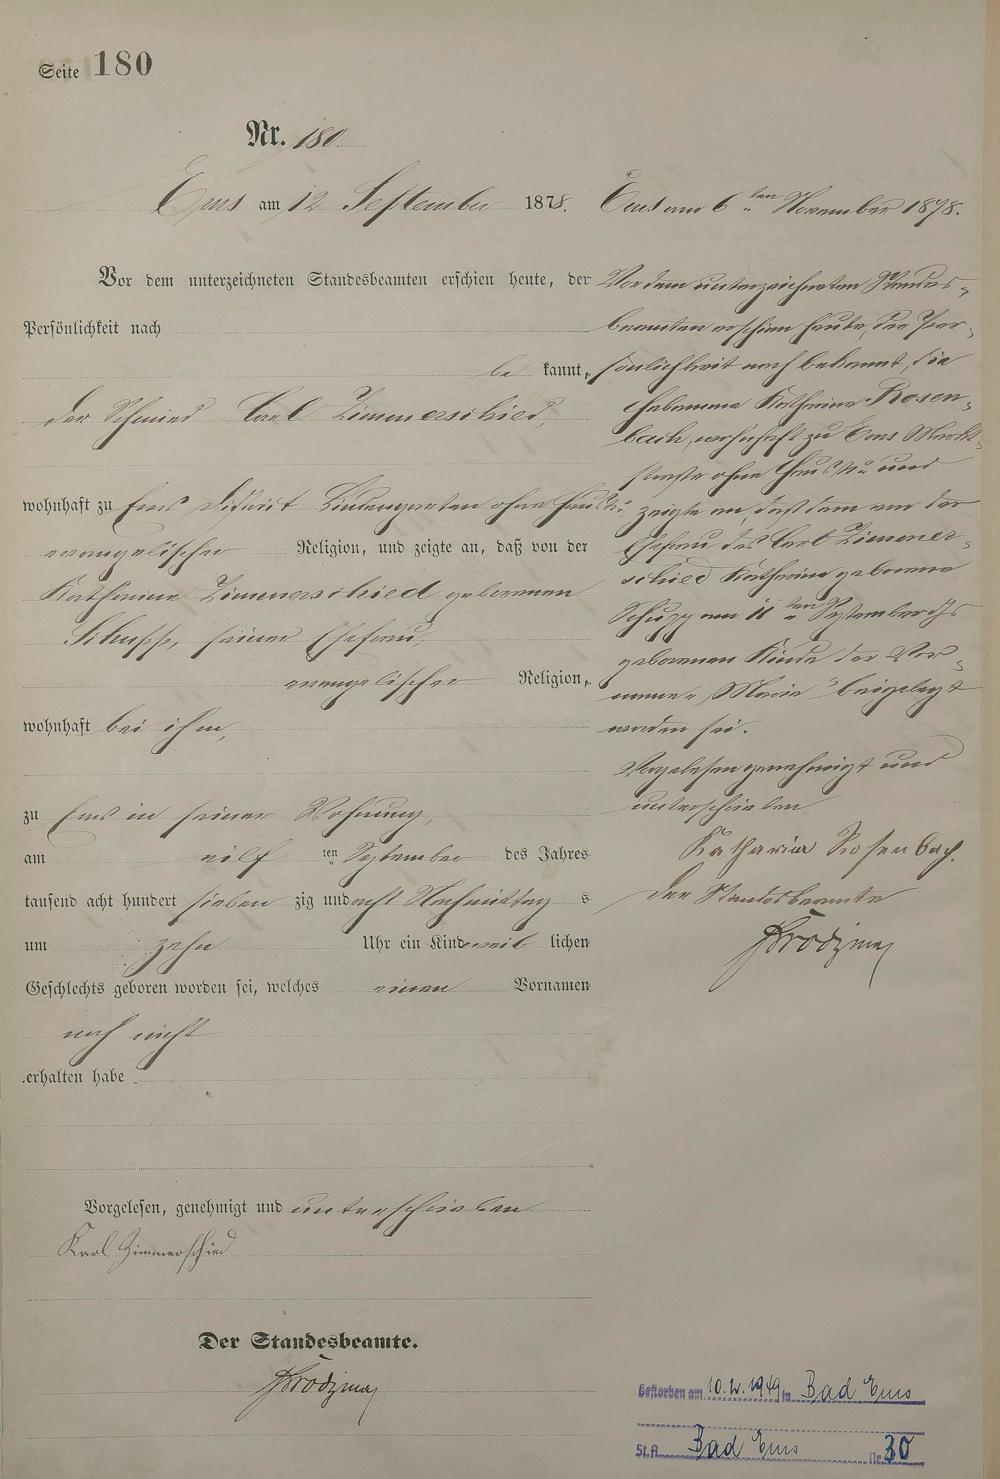 Seite 180
Nr. 180.
Ems am 12 September 1878.
Vor dem unterzeichneten Standesbeamten erschien heute, der
Persönlichkeit nach
be kannt,
der Schmied Carl Zimmerschied,
wohnhaft zu Ems District Lindengarten ohne Haus Nr
evangelischer Religion, und zeigte an, daß von der
Katharina Zimmerschied geborenen
Schupp, seiner Ehefrau,
evangelischer Religion,
wohnhaft bei ihm,
zu Ems in seiner Wohnung,
am eilf ten September des Jahres
tausend acht hundert sieben zig und acht Nachmittag s
um zehn Uhr ein Kind weib lichen
Geschlechts geboren worden sei, welches einen Vornamen
noch nicht
erhalten habe.
Vorgelesen, genehmigt und unterschrieben
Karl Zimmerschied
Der Standesbeamte.
Ems am 6ten November 1878.
Vor dem unterzeichneten Standes-
beamten erschien heute, der Per-
sönlichkeit nach bekannt, die
Hebamme Katharina Rosen-
bach, wohnhaft zu Ems Markt-
straße ohne Haus Nr und
zeigte an, daß dem von der
Ehefrau des Carl Zimmer-
schied Katharina geborene
Schupp am 11ten September ds Js
geborenen Kinde der Vor-
name "Maria" beigelegt
worden sei.
Vorgelesen genehmigt und
unterschrieben
Katharina Rosenbach.
Der Standesbeamte
Gestorben am 10.2.1949 in Bad Ems
St.A. Bad Ems Nr. 30